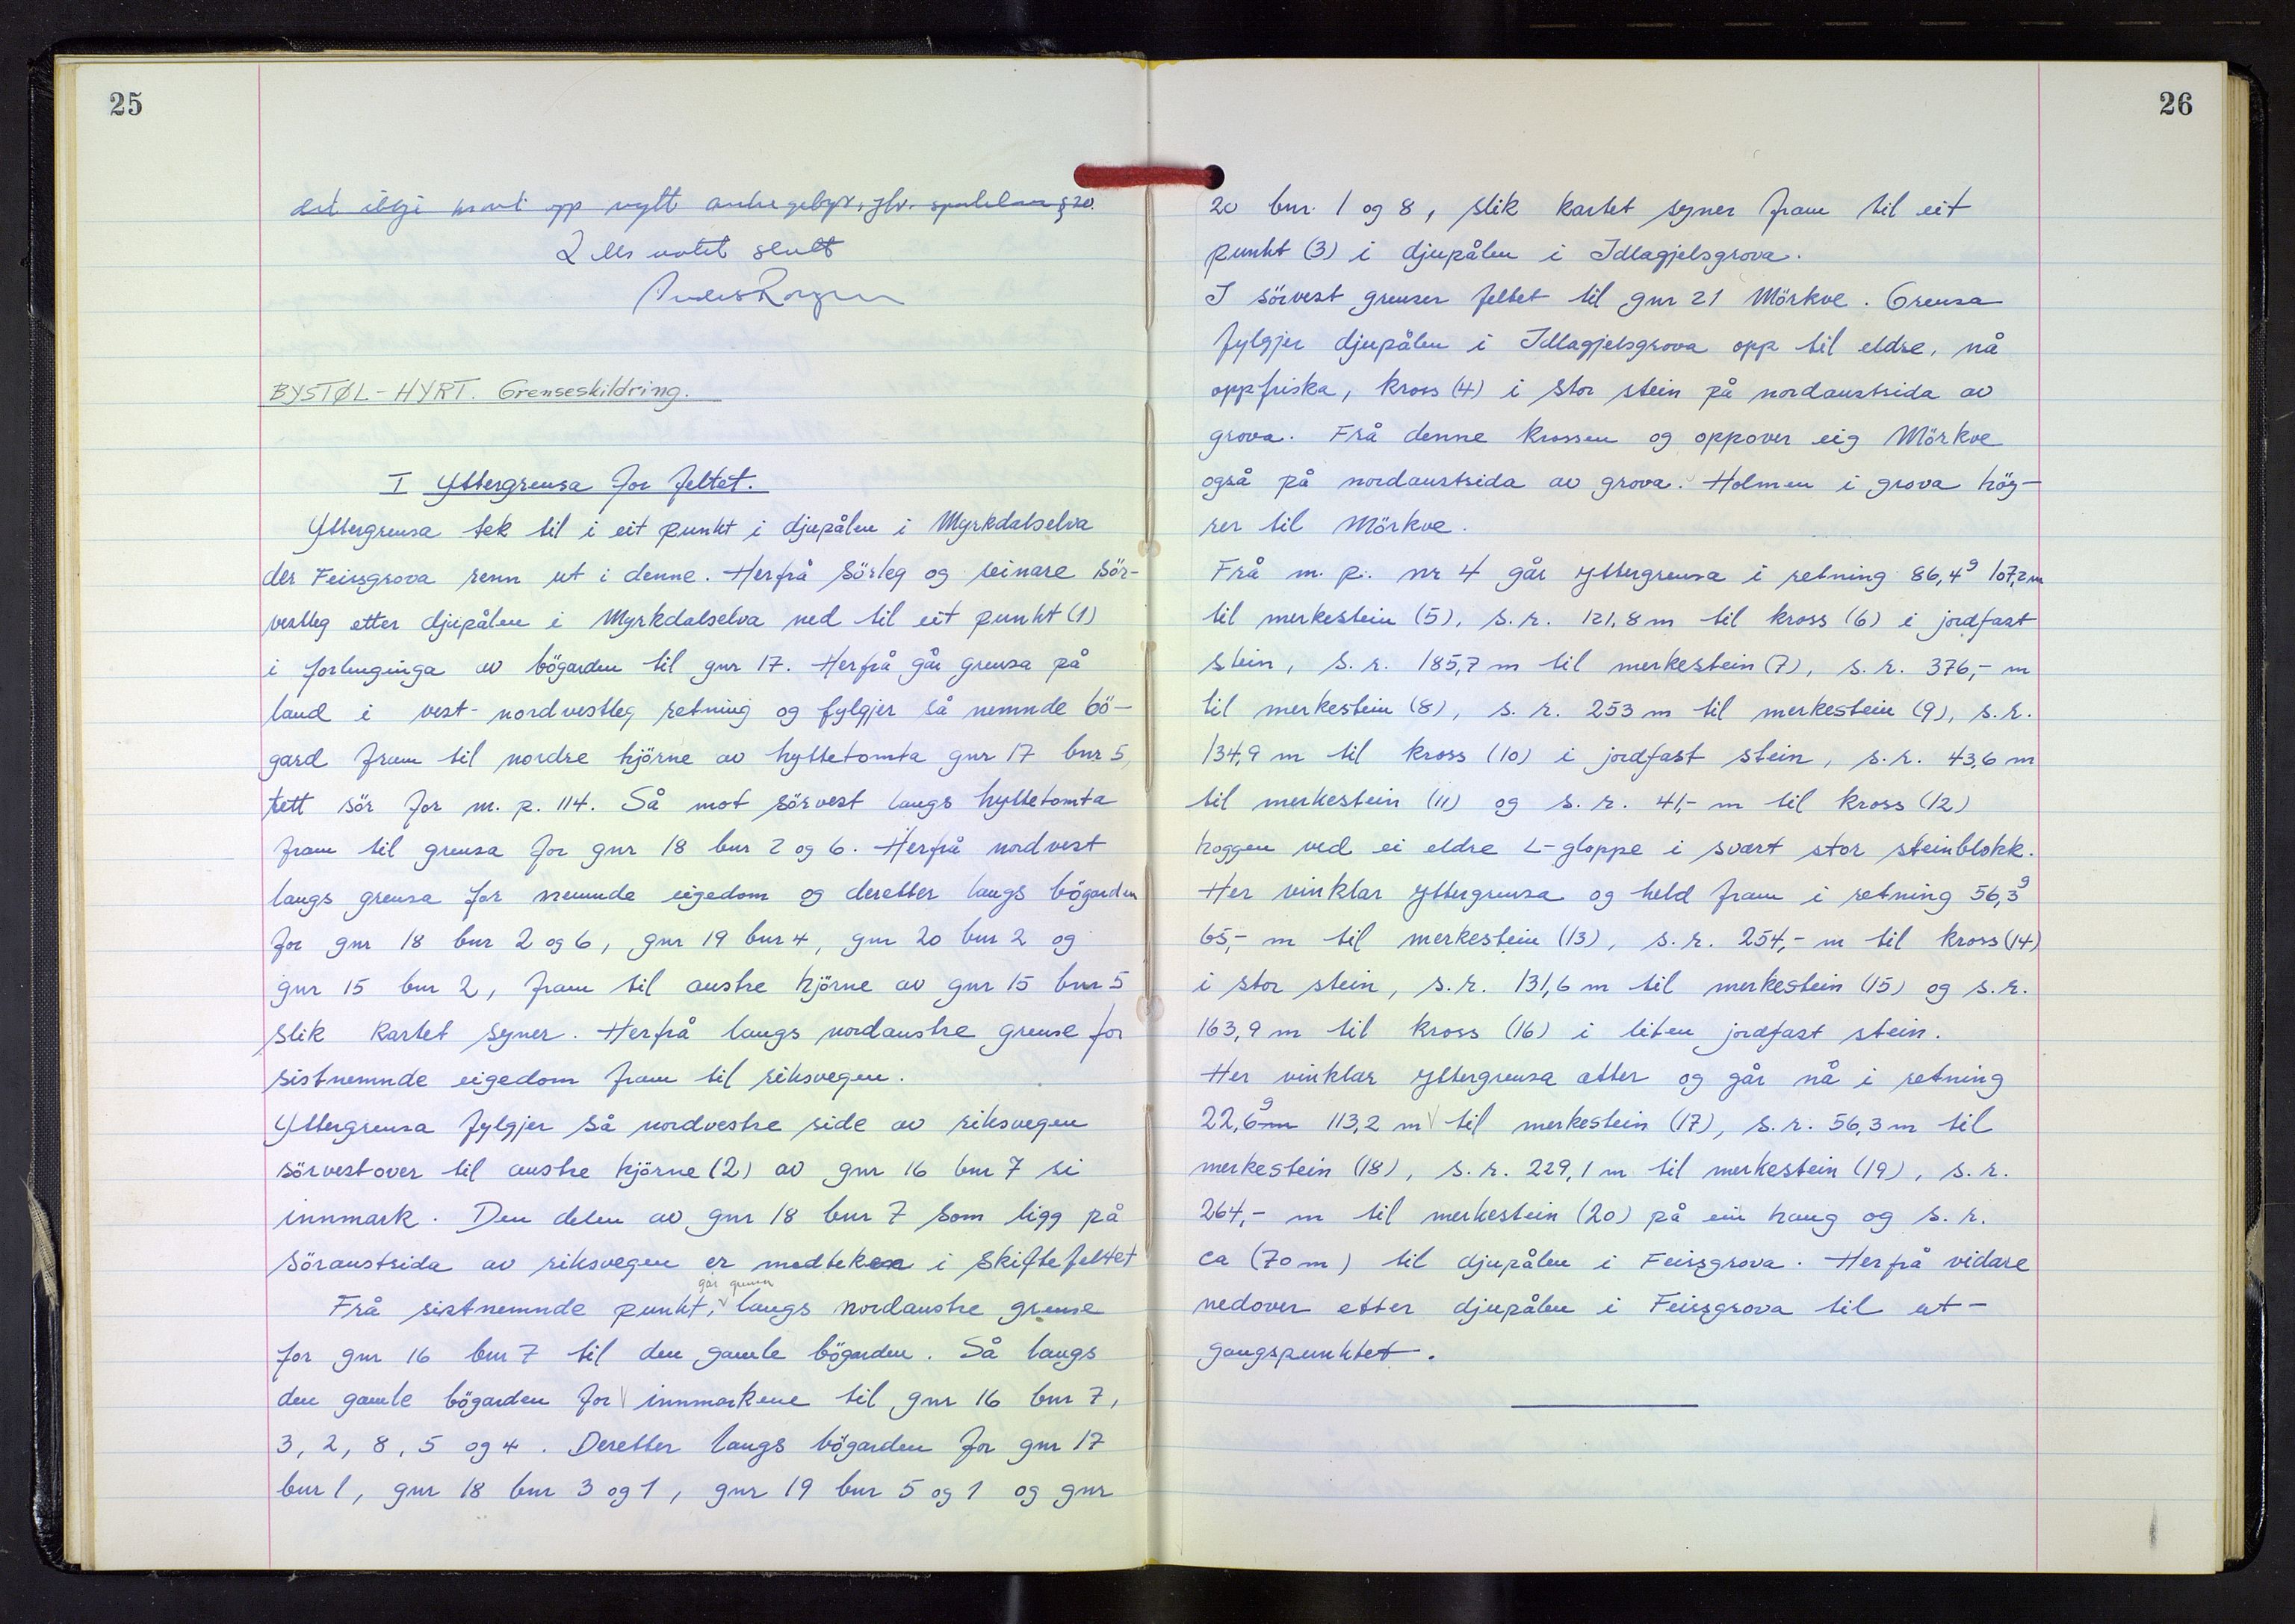 25
det ikkje kravt opp nytt ankegebyr, jfr. §20.
2 slutt
BYSTØL - HYRT. Grenseskildring.
I Yttergrensa for feltet.
Yttergrensa tek til i eit punkt i djupålen i Myrkdalselva
der Feirsgrova renn ut i denne. Herfrå sörleg og seinare sör-
vestleg etter djupålen i Myrkdalselva ned til eit punkt (1)
i forlenginga av bögarden til gnr 17. Herfrå går grensa på
land i vest-nordvestleg retning og fylgjer så nemnde bö-
gard fram til nordre hjörne av hyttetomta gnr 17 bnr 5,
tett sör for m. p. 114. Så mot sörvest langs hyttetomta
fram til grensa for gnr 18 bnr 2 og 6. Herfrå nordvest
langs grensa for nemnde eigedom og deretter langs bögarden
for gnr 18 bnr 2 og 6, gnr 19 bnr 4, gnr 20 bnr 2 og
gnr 15 bnr 2, fram til austre hjörne av gnr 15 bnr 5
slik kartet syner. Herfrå langs nordaustre grense for
sistnemnde eigedom fram til riksvegen.
Yttergrensa fylgjer så nordvestre side av riksvegen
sörvestover til austre hjörne (2) av gnr 16 bnr 7 si
innmark. Den delen av gnr 18 bnr 7 som ligg på
söraustsida av riksvegen er medteken i skiftefeltet
går grensa
Frå sistnemnde punkt, langs nordaustre grense
for gnr 16 bnr 7 til den gamle bögarden. Så langs
den gamle bögarden for innmarkene til gnr 16 bnr 7,
3, 2, 8, 5 og 4. Deretter langs bögarden for gnr 17
bnr 1, gnr 18 bnr 3 og 1, gnr 19 bnr 5 og 1 og gnr
26
20 bnr 1 og 8, slik kartet syner fram til eit
punkt (3) i djupålen i Idlagjelsgrova.
I sörvest grenser feltet til gnr 21 Mörkve. Grensa
fylgjer djupålen i Idlagjelsgrova opp til eldre, nå
oppfriska, kross (4) i stor stein på nordaustsida av
grova. Frå denne krossen og oppover eig Mörkve
også på nordaustsida av grova. Holmen i grova höy-
rer til Mörkve.
Frå m. p. nr 4 går yttergrensa i retning 86,4g 107,2m
til merkestein (5), s.r. 121,8 m til kross (6) i jordfast
stein, s.r. 185,7 m til merkestein (7), s.r. 376,- m
til merkestein (8), s.r. 253 m til merkestein (9), s.r.
134,9 m til kross (10) i jordfast stein, s.r. 43,6 m
til merkestein (11) og s.r. 41,- m til kross (12)
hoggen ved ei eldre L-gloppe i svært stor steinblokk.
Her vinklar yttergrensa og held fram i retning 56,3g
65,- m til merkestein (13), s.r. 254,- m til kross (14)
i stor stein, s.r. 131,6 m til merkestein (15) og s.r.
163,9 m til kross (16) i liten jordfast stein.
Her vinklar yttergrensa atter og går nå i retning
22,6g m 113,2 m til merkestein (17), s.r. 56,3 m til
merkestein (18), s.r. 229,1 m til merkestein (19), s.r.
264,- m til merkestein (20) på ein haug og s.r.
ca (70 m) til djupålen i Feirsgrova. Herfrå vidare
nedover etter djupålen i Feirsgrova til ut-
gangspunktet.